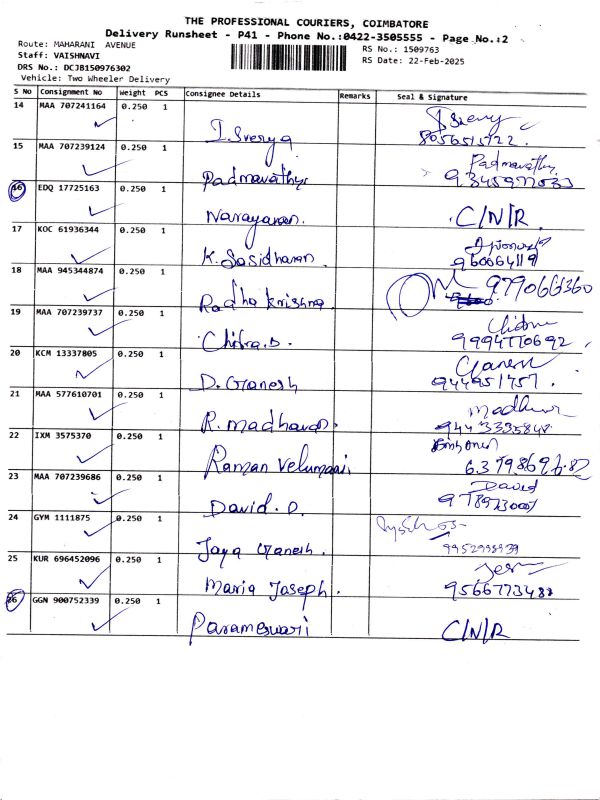 THE PROFESSIONAL COURIERS, COIMBATORE
Delivery Runsheet - P41 - Phone No.:0422-3505555 - Page No.:2
Route: MAHARANI AVENUE
RS No.: 1509763
Staff: VAISHNAVI
RS Date: 22-Feb-2025
DRS No.: DCJB150976302
Vehicle: Two Wheeler Delivery
S No Consignment No Weight PCS Consignee Details Remarks Seal & Signature
14 MAA 707241164 0.250 1
15 MAA 707239124 0.250 1
Padmavathy Padmavathy
16 EDQ 17725163 0.250 1
Narayanan. C/N/R.
17 KOC 61936344 0.250 1
K. Sasidharan.
18 MAA 945344874 0.250 1
Radha krishna
19 MAA 707239737 0.250 1
Chitra.S.
20 KCM 13337805 0.250 1
D. Ganesh Ganesh
21 MAA 577610701 0.250 1
R. madhavan.
22 IXM 3575370 0.250 1
Raman Velumani
23 MAA 707239686 0.250 1
David. D. David
24 GYM 1111875 0.250 1
Jaya Ganesh.
25 KUR 696452096 0.250 1
Maria Joseph.
26 GGN 900752339 0.250 1
Parameswari C/N/R